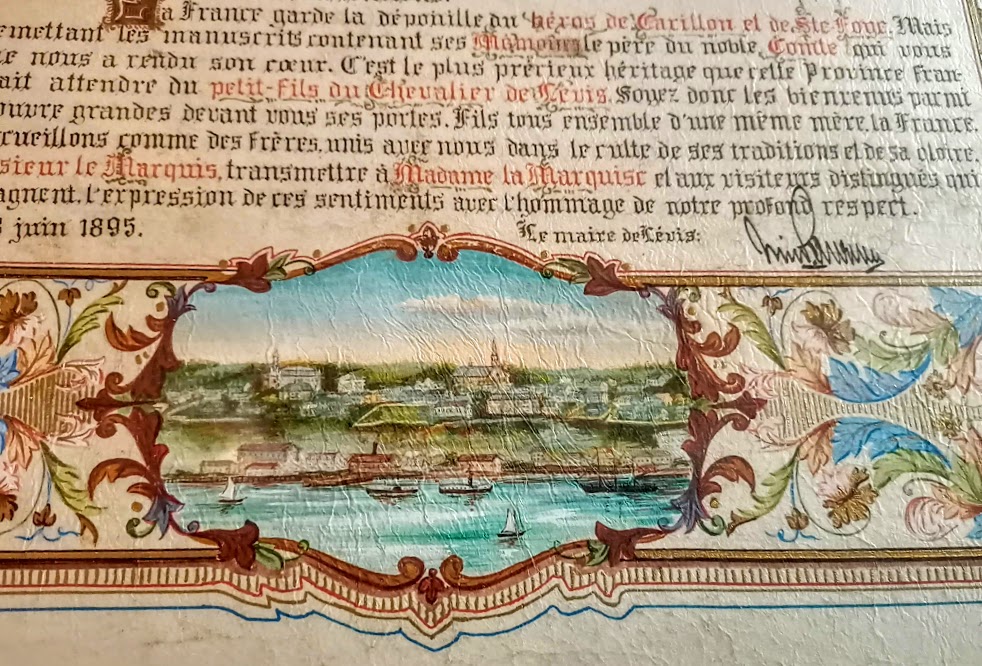 La France garde la dépouille du héros de Carillon et de Ste Foye. Mais
emettant les manuscrits contenant ses Mémoires le père du noble Comte qui vous
e nous a rendu son cœur. C'est le plus précieux héritage que cette Province Fran-
ait attendre du petit-fils du Chevalier de Lévis. Soyez donc les bienvenus parmi
ouvre grandes devant vous ses portes. Fils tous ensemble d'une même mère, la France,
cueillons comme des Frères, unis avec nous dans le culte de ses traditions et de sa gloire.
sieur le Marquis, transmettre à Madame la Marquise et aux visiteurs distingués qui
agnent, l'expression de ces sentiments avec l'hommage de notre profond respect.
juin 1895. Le maire de Lévis: